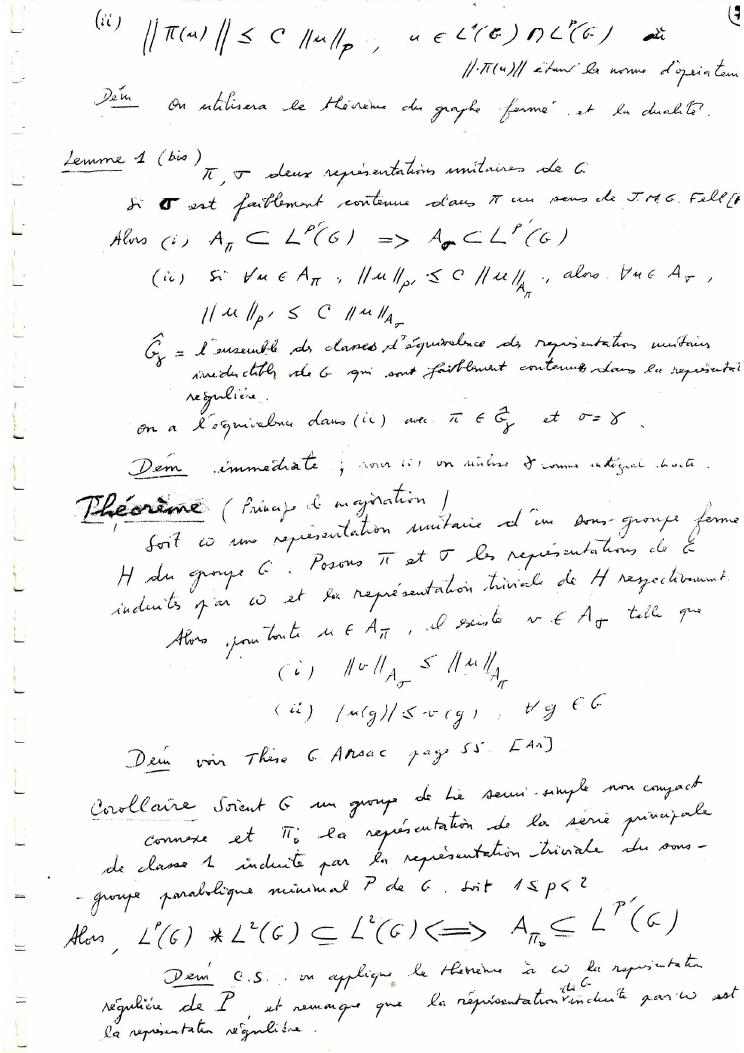 (ii) ||π(u)|| ≤ C ||u||_p , u ∈ L¹(G) ∩ L^p(G) où
||·π(u)|| étant la norme d'opérateur
Dém On utilisera le théorème du graphe fermé et la dualité.
Lemme 1 (bis) π, σ deux représentations unitaires de G
Si σ est faiblement contenue dans π au sens de J.M.G. Fell
Alors (i) A_π ⊂ L^{p'}(G) => A_σ ⊂ L^{p'}(G)
(ii) Si ∀u ∈ A_π , ||u||_{p'} ≤ C ||u||_{A_π} , alors ∀u ∈ A_σ ,
||u||_{p'} ≤ C ||u||_{A_σ}
Ĝ_γ = l'ensemble des classes d'équivalence des représentations unitaires
irréductibles de G qui sont faiblement contenues dans la représentat
régulière.
on a l'équivalence dans (ii) avec π ∈ Ĝ_γ et σ = γ .
Dém immédiate ; pour (ii) on utilise γ comme intégral directe.
Théorème (Principe de majoration)
Soit ω une représentation unitaire d'un sous-groupe fermé
H du groupe G. Posons π et σ les représentations de G
induites par ω et la représentation triviale de H respectivement.
Alors pour toute u ∈ A_π , il existe v ∈ A_σ telle que
(i) ||v||_{A_σ} ≤ ||u||_{A_π}
(ii) |u(g)| ≤ v(g) , ∀g ∈ G
Dém voir Thèse G Arsac page 55. [Ar]
Corollaire Soient G un groupe de Lie semi-simple non compact
connexe et π_0 la représentation de la série principale
de classe 1 induite par la représentation triviale du sous-
-groupe parabolique minimal P de G. Soit 1 ≤ p < 2
Alors, L^p(G) * L²(G) ⊆ L²(G) <=> A_{π_0} ⊆ L^{p'}(G)
Dém C.S. on applique le théorème à ω la représentation
régulière de P, et remarque que la représentation de G induite par ω est
la représentation régulière.